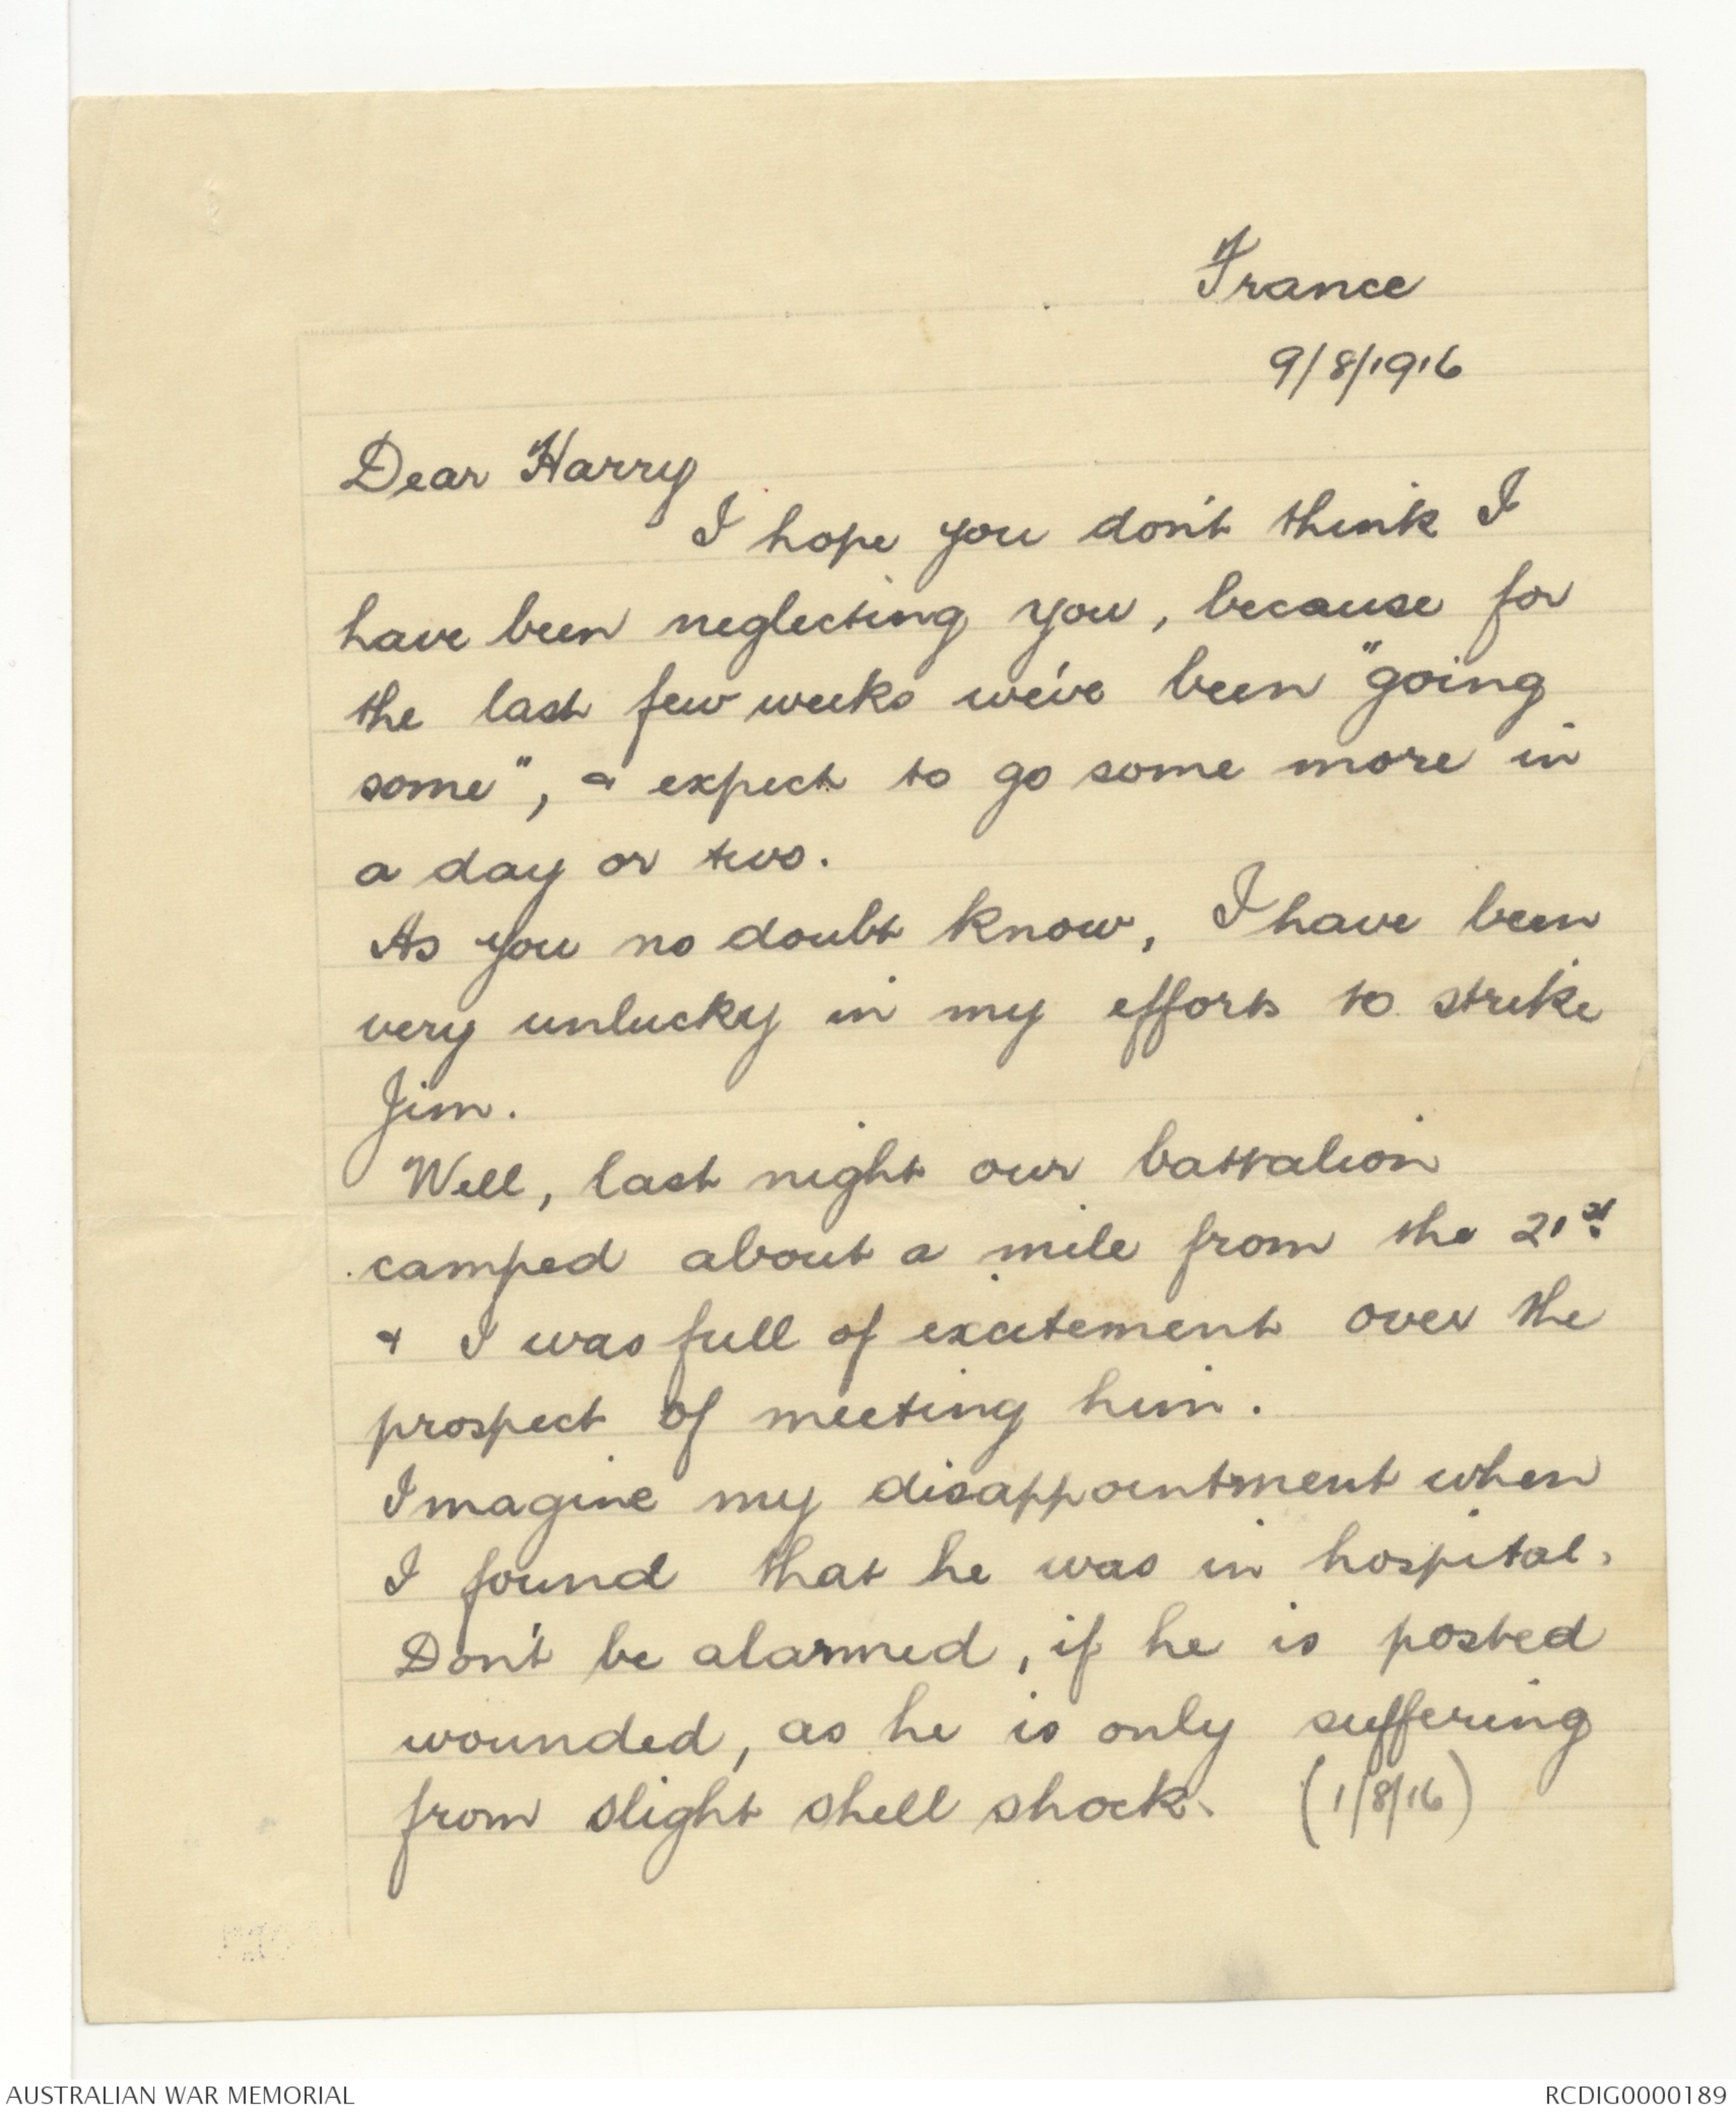 France
9/8/1916
Dear Harry
I hope you don't think I
have been neglecting you, because for
the last few weeks we've been "going
some", & expect to go some more in
a day or two.
As you no doubt know, I have been
very unlucky in my efforts to strike
Jim.
Well, last night our battalion
camped about a mile from the 21st
& I was full of excitement over the
prospect of meeting him.
Imagine my disappointment when
I found that he was in hospital.
Don't be alarmed, if he is posted
wounded, as he is only suffering
from slight shell shock. (1/8/16)
AUSTRALIAN WAR MEMORIAL
RCDIG0000189